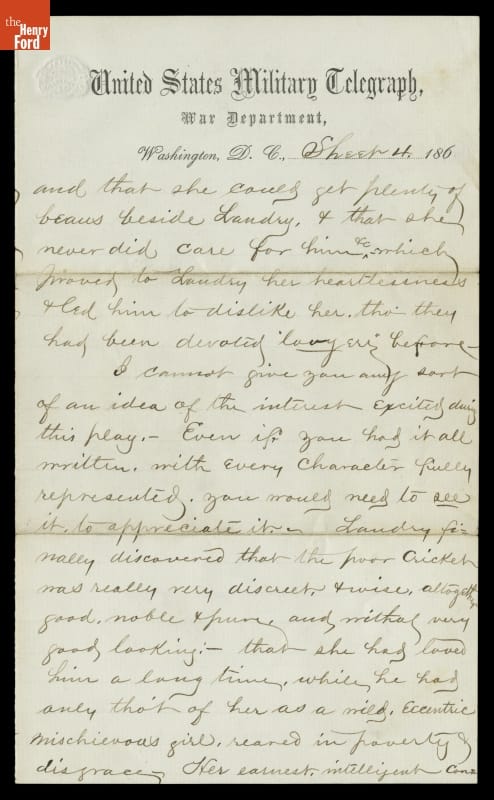 the
Henry
Ford
United States Military Telegraph,
War Department,
Washington, D. C., Sheet 4. 186
and that she could get plenty of
beaus beside Landry, & that she
never did care for him &c, which
proved to Landry her heartlessness
& led him to dislike her, tho' they
had been devoted "lovyers" before—
I cannot give you any sort
of an idea of the interest excited during
this play.— Even if you had it all
written, with every character fully
represented, you would need to see
it, to appreciate it.— Landry fi-
nally discovered that the poor Cricket
was really very discreet, & wise, altogether
good, noble & pure, and withal very
good looking;— that she had loved
him a long time, while he had
only tho't of her as a wild, Eccentric
mischievous girl, reared in poverty &
disgrace. Her earnest, intelligent Con=